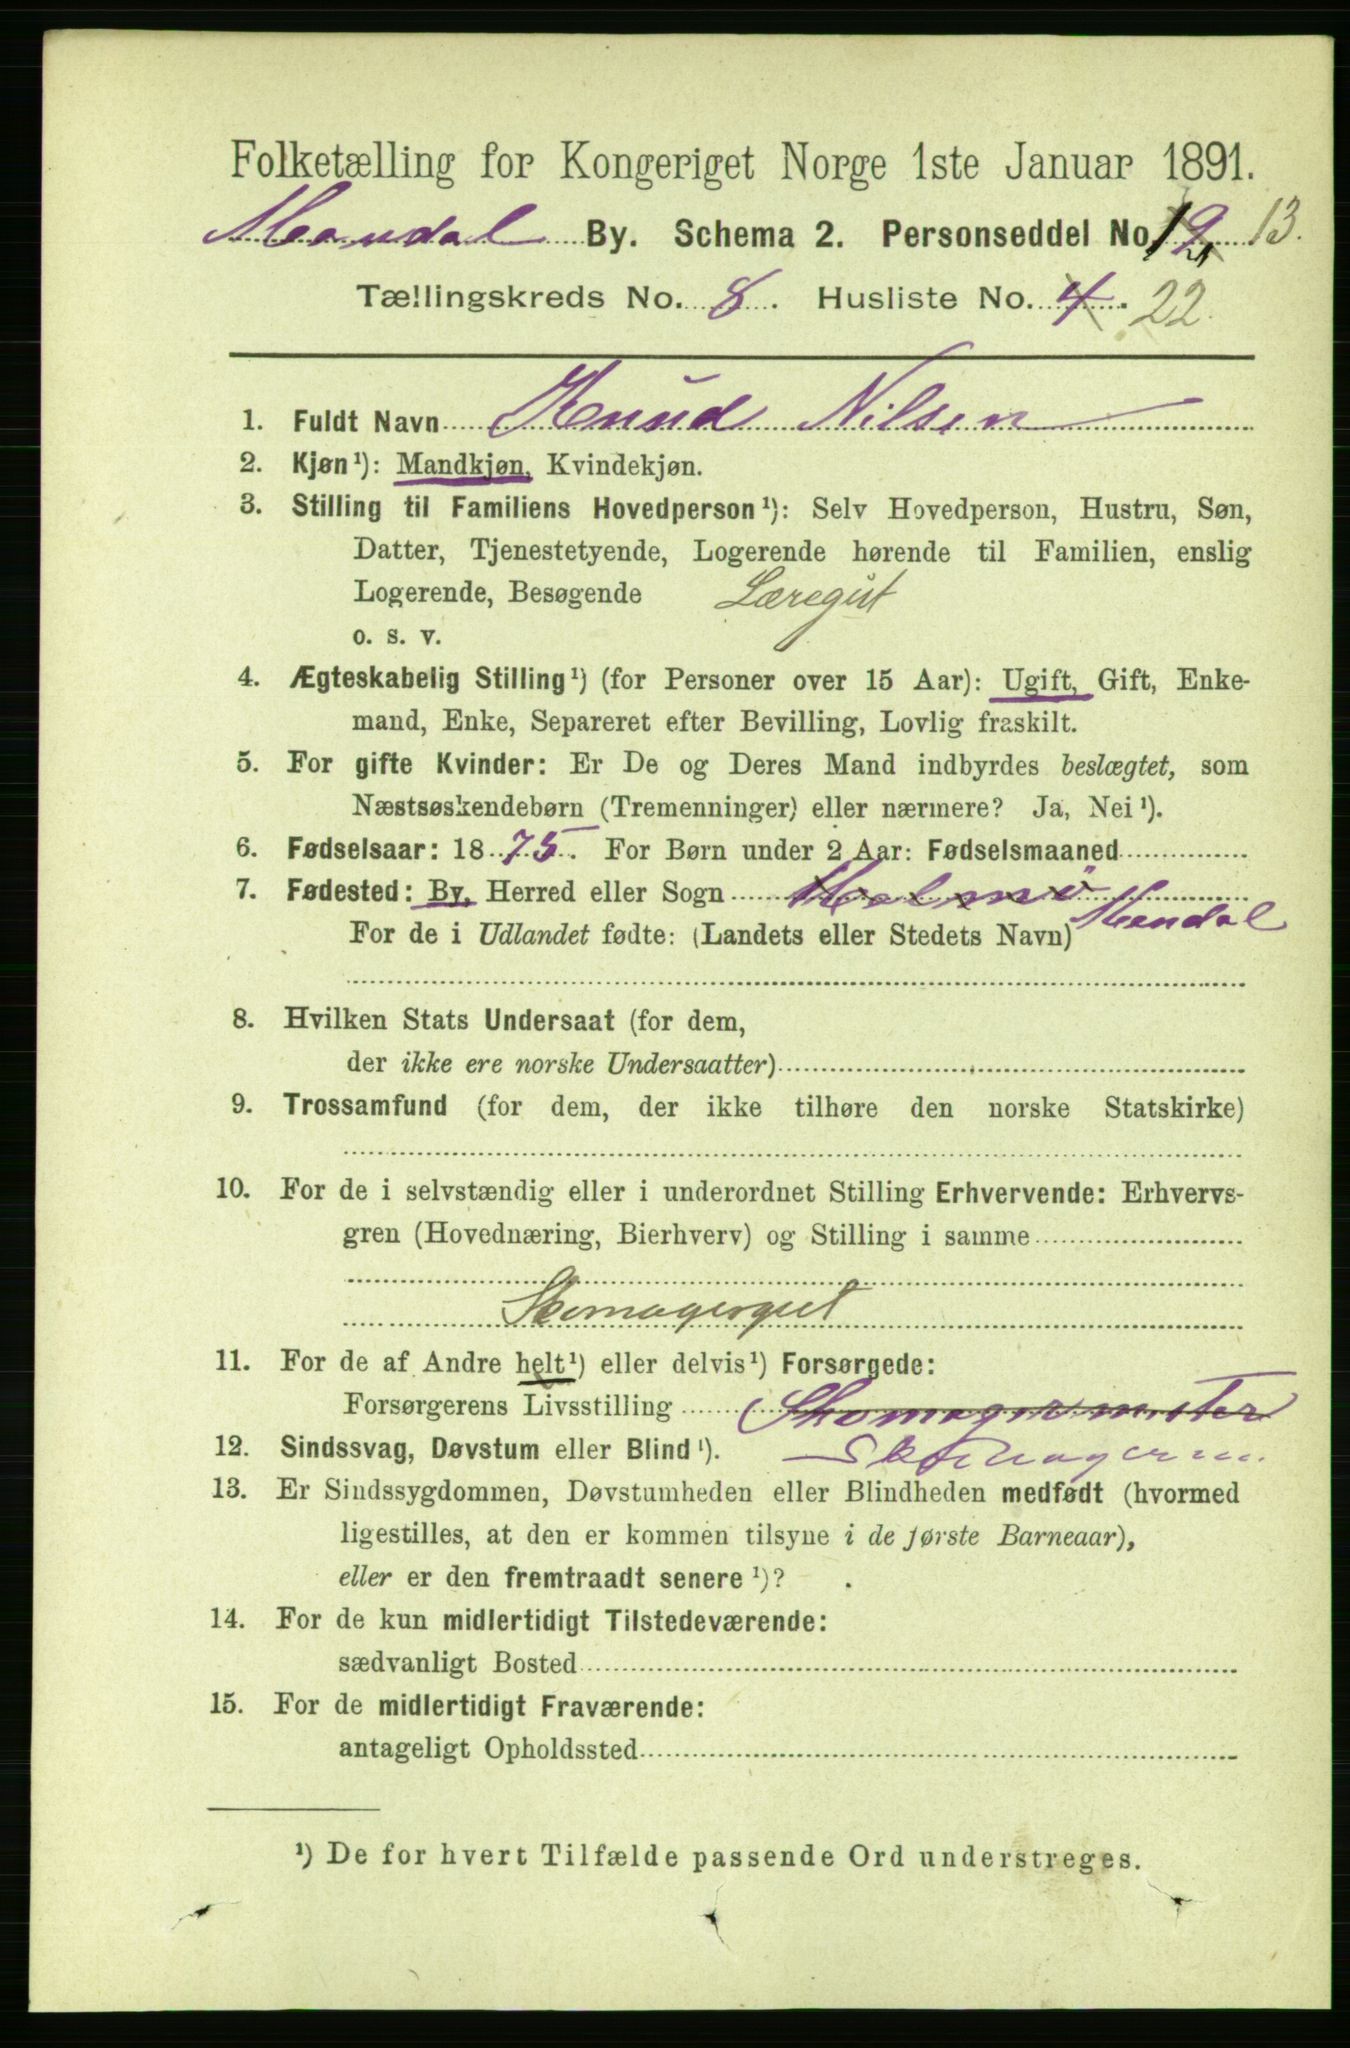 Folketælling for Kongeriget Norge 1ste Januar 1891.
Mandal By. Schema 2. Personseddel No. 13.
Tællingskreds No. 8. Husliste No. 4. 22.
1. Fuldt Navn Knud Nilsen
2. Kjøn¹): Mandkjøn, Kvindekjøn.
3. Stilling til Familiens Hovedperson¹): Selv Hovedperson, Hustru, Søn,
Datter, Tjenestetyende, Logerende hørende til Familien, enslig
Logerende, Besøgende Læregut
o. s. v.
4. Ægteskabelig Stilling¹) (for Personer over 15 Aar): Ugift, Gift, Enke-
mand, Enke, Separeret efter Bevilling, Lovlig fraskilt.
5. For gifte Kvinder: Er De og Deres Mand indbyrdes beslægtet, som
Næstsøskendebørn (Tremenninger) eller nærmere? Ja, Nei¹).
6. Fødselsaar: 1875. For Børn under 2 Aar: Fødselsmaaned
7. Fødested: By, Herred eller Sogn Malmø
For de i Udlandet fødte: (Landets eller Stedets Navn) Mandal
8. Hvilken Stats Undersaat (for dem,
der ikke ere norske Undersaatter)
9. Trossamfund (for dem, der ikke tilhøre den norske Statskirke)
10. For de i selvstændig eller i underordnet Stilling Erhvervende: Erhvervs-
gren (Hovednæring, Bierhverv) og Stilling i samme
Skomagergut
11. For de af Andre helt¹) eller delvis¹) Forsørgede:
Forsørgerens Livsstilling Skomagermester
12. Sindssvag, Døvstum eller Blind¹). Skomagerm.
13. Er Sindssygdommen, Døvstumheden eller Blindheden medfødt (hvormed
ligestilles, at den er kommen tilsyne i de første Barneaar),
eller er den fremtraadt senere¹)?
14. For de kun midlertidigt Tilstedeværende:
sædvanligt Bosted
15. For de midlertidigt Fraværende:
antageligt Opholdssted
¹) De for hvert Tilfælde passende Ord understreges.